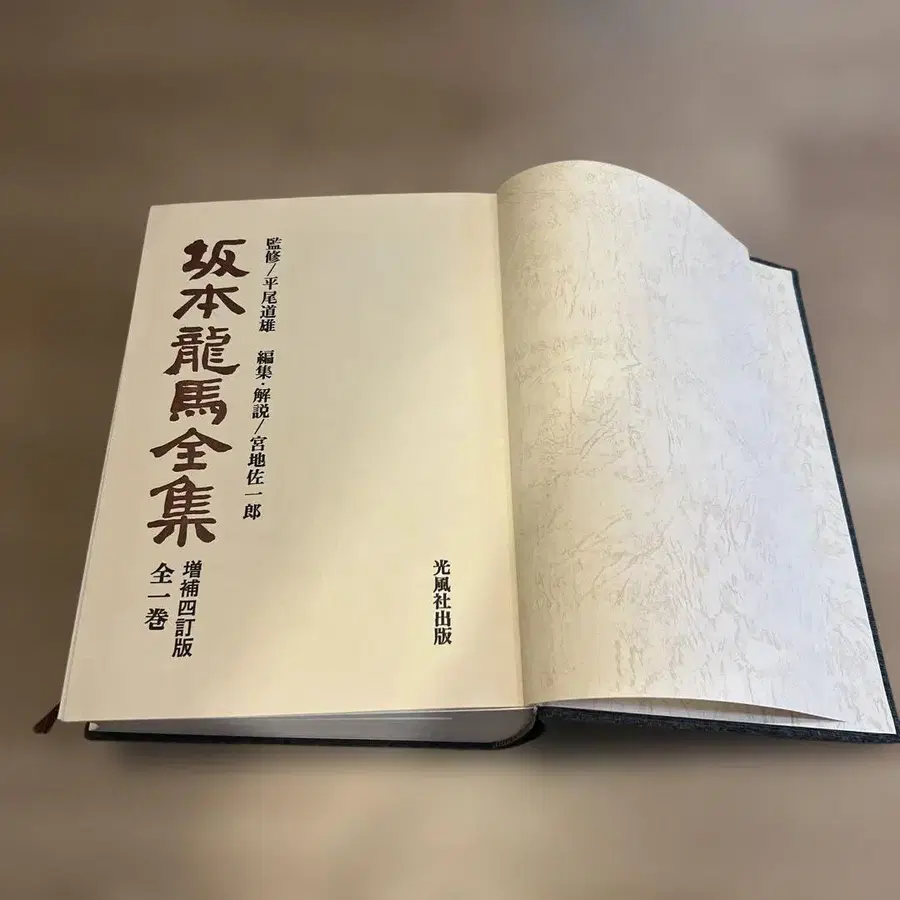 監修/平尾道雄 編集・解説/宮地佐一郎
坂本龍馬全集
増補四訂版
全一巻
光風社出版